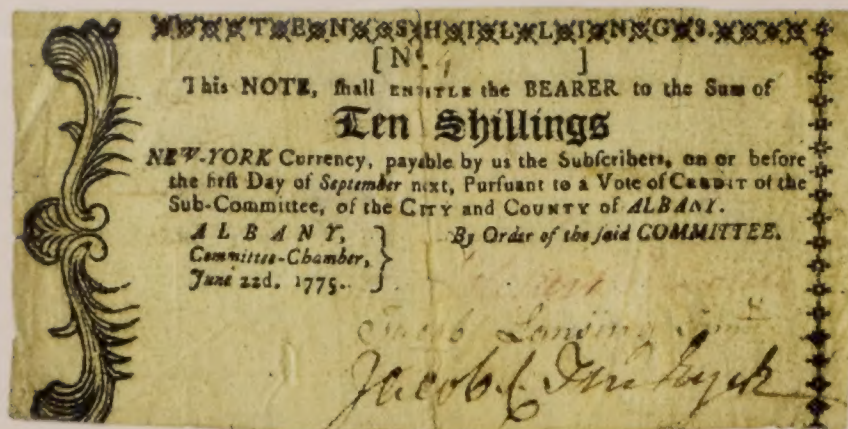 TEN SHILLINGS.
[ No. 4 ]
This NOTE, ſhall ENTITLE the BEARER to the Sum of
Ten Shillings
NEW-YORK Currency, payable by us the Subſcribers, on or before
the firſt Day of September next, Purſuant to a Vote of CREDIT of the
Sub-Committee, of the CITY and COUNTY of ALBANY.
ALBANY, } By Order of the ſaid COMMITTEE.
Committee-Chamber,
June 22d. 1775.
Jacob Lansing Junr
Jacob C Ten Eyck